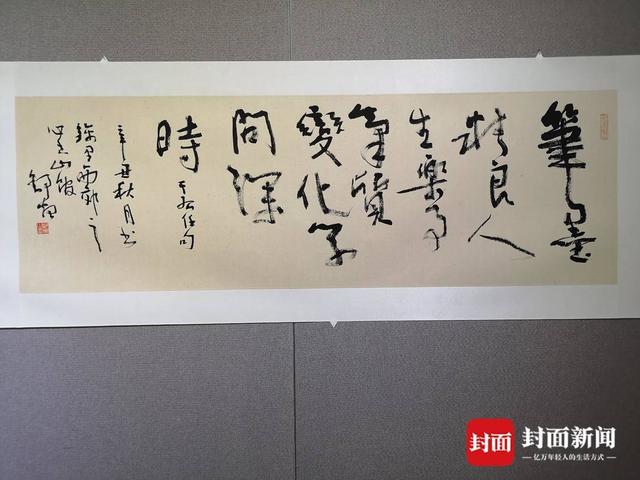 筆墨
精良人
生樂事
氣質
變化学
問深
時
任句
辛丑秋月书
封面
封面新闻
亿万年轻人的生活方式